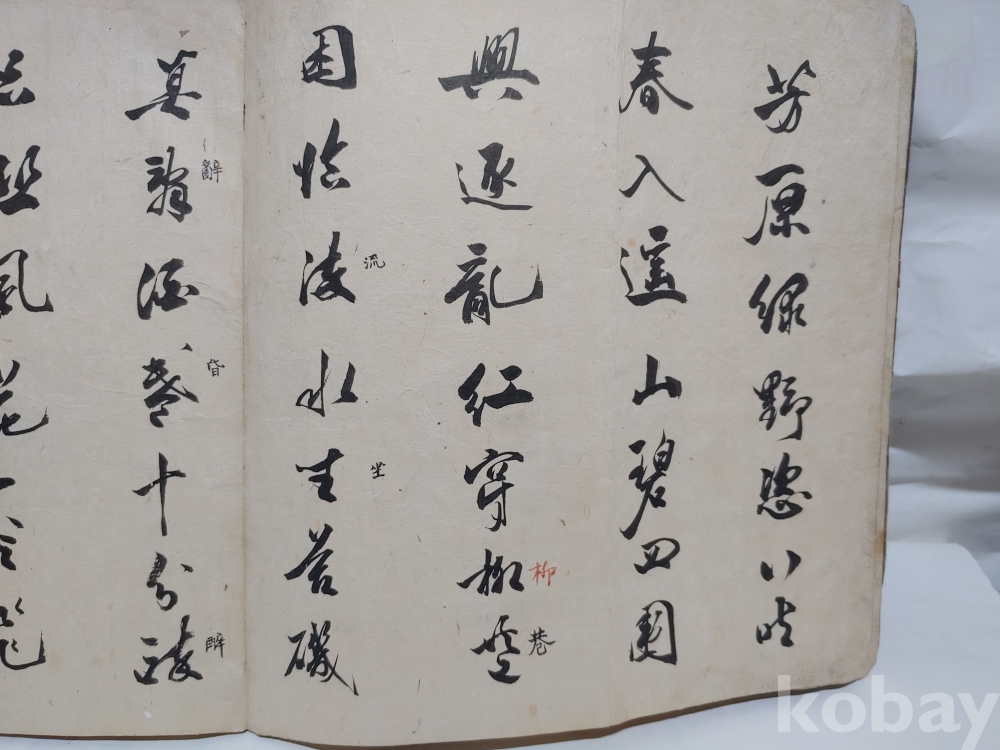 芳原綠野恣行時
春入遙山碧四圍
興逐亂紅穿柳巷
柳
巷
困臨流水坐苔磯
流
坐
莫辭酒盞十分醉
辭
醉
只恐風花一片飛
kobay